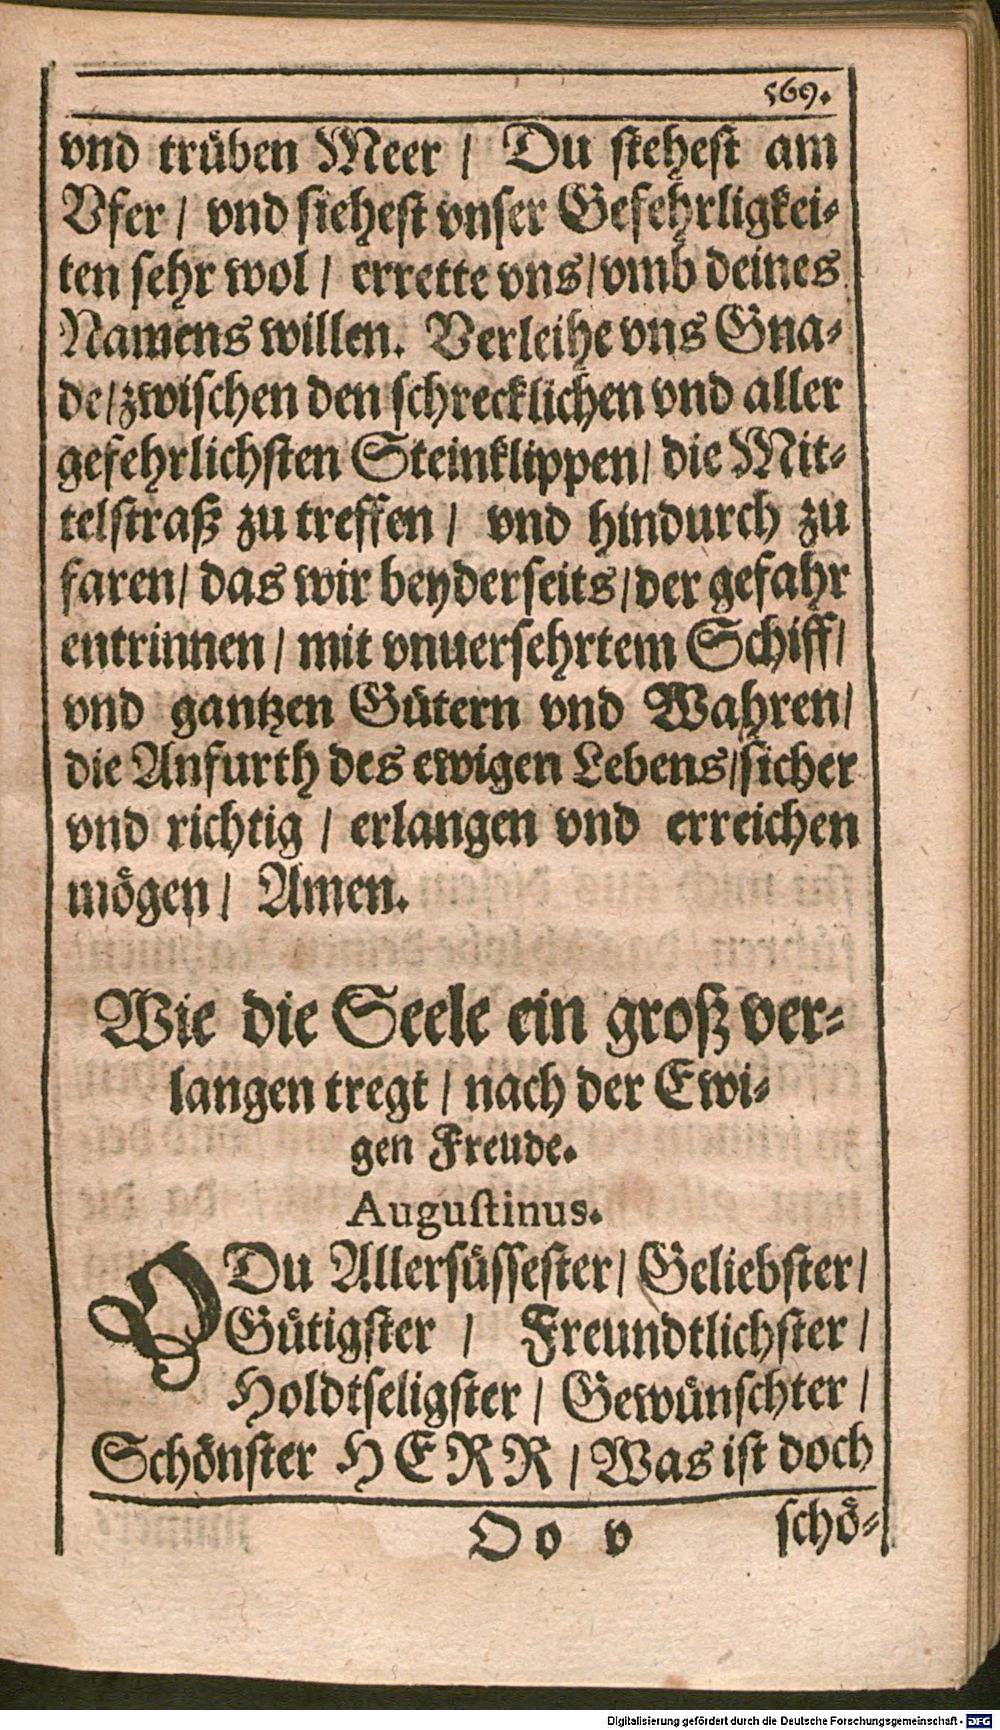 569.
vnd truͤben Meer / Du stehest am
Vfer / vnd siehest vnser Gefehrligkei-
ten sehr wol / errette vns / vmb deines
Namens willen. Verleihe vns Gna-
de / zwischen den schrecklichen vnd aller
gefehrlichsten Steinklippen / die Mit-
telstraß zu treffen / vnd hindurch zu
faren / das wir beyderseits / der gefahr
entrinnen / mit vnuersehrtem Schiff /
vnd gantzen Guͤtern vnd Wahren /
die Anfurth des ewigen Lebens / sicher
vnd richtig / erlangen vnd erreichen
moͤgen / Amen.
Wie die Seele ein groß ver-
langen tregt / nach der Ewi-
gen Freude.
Augustinus.
O Du Allersuͤssester / Geliebster /
Guͤtigster / Freundtlichster /
Holdtseligster / Gewuͤnschter /
Schoͤnster HERR / Was ist doch
Oo v schoͤ-
Digitalisierung gefördert durch die Deutsche Forschungsgemeinschaft - DFG